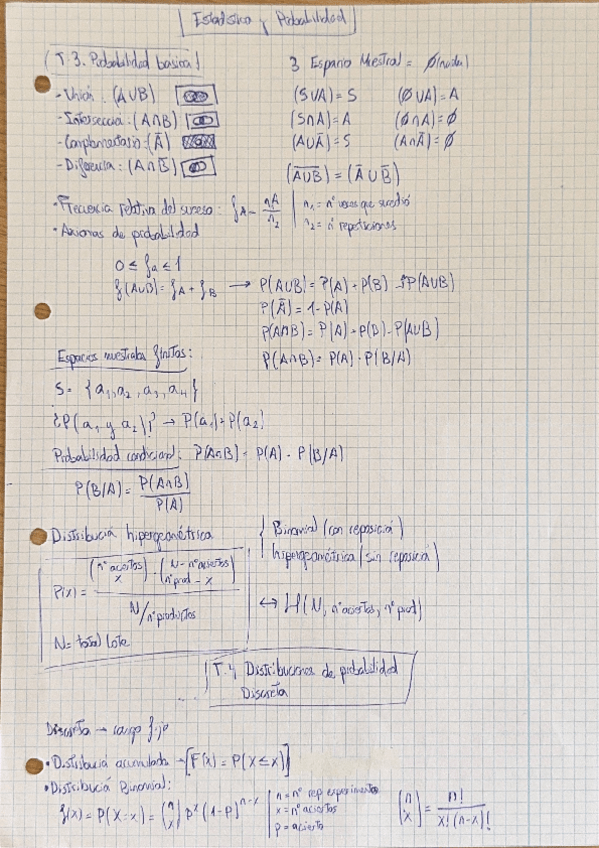 Estadística y Probabilidad
T.3. Probabilidad básica
- Unión: (A∪B)
- Intersección: (A∩B)
- Complementario: (Ā)
- Diferencia: (A∩B̄)
3 Espacio Muestral = ∅(nulo)
(S∪A) = S (∅∪A) = A
(S∩A) = A (∅∩A) = ∅
(A∪Ā) = S (A∩Ā) = ∅
(A̅∪̅B̅) = (Ā∪B̄)
• Frecuencia relativa del suceso: fA = nA/n₂ | n₁ = nº veces que sucedió
n₂ = nº repeticiones
• Axiomas de probabilidad
0 ≤ fa ≤ 1
f(A∪B) = fA + fB → P(A∪B) = P(A) + P(B) - P(A∪B)
P(Ā) = 1 - P(A)
P(A∩B) = P(A) + P(B) - P(A∪B)
P(A∩B) = P(A) · P(B/A)
Espacios muestrales finitos:
S = {a₁, a₂, a₃, a₄}
¿P(a₁ y a₂)? → P(a₁) + P(a₂)
Probabilidad condicional: P(A∩B) = P(A) · P(B/A)
P(B/A) = P(A∩B)/P(A)
• Distribución hipergeométrica
Binomial (con reposición)
hipergeométrica (sin reposición)
P(x) = (nº aciertos x) · (N - nº aciertos nº prod - x) / N/nº productos
N = total lote
↔ H(N, nº aciertos, nº prod)
T.4 Distribuciones de probabilidad
Discreta
Discreta → rango fijo
• Distribución acumulada → [F(x) = P(X ≤ x)]
• Distribución Binomial:
f(x) = P(X=x) = (n x) pˣ (1-p)ⁿ⁻ˣ | n = nº rep experimento
x = nº aciertos
p = acierto
(n x) = n! / x!(n-x)!